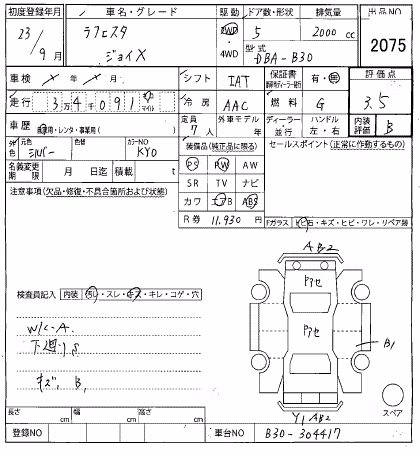 初度登録年月 車名・グレード 駆動 ドア数・形状 排気量 出品NO
23/9月 ラフェスタ ジョイX 2WD・4WD 5 2000 cc 2075
型式 DBA-B30
車検 × 年 × 月 シフト IAT 保証書 有・無 評価点
走行 3万4千091 キロ マイル 冷房 AAC 燃料 G 3.5
車歴 自家用・レンタ・事業用( ) 定員 7人 外車モデル 年 ディーラー・並行 ハンドル 左・右 内装評価 B
外色 元色 シルバー 色替 カラーNO KY0 装備品(純正品に限る) セールスポイント(正常に作動するもの)
名義変更期限 月 日迄 積載 t PS PW AW
注意事項(欠品・修復・不具合箇所および状態) SR TV ナビ
カワ エアB ABS
R券 11.930円
Fガラス トビ石・キズ・ヒビ・ワレ・リペア跡
AB2
検査員記入 内装 汚レ・スレ・キズ・キレ・コゲ・穴
W/C-A
下廻りS
キズ, B1
アセ
アセ
B1
スペア
Y1 AB2
長さ cm 幅 cm 高さ cm
登録NO 車台NO B30-304417